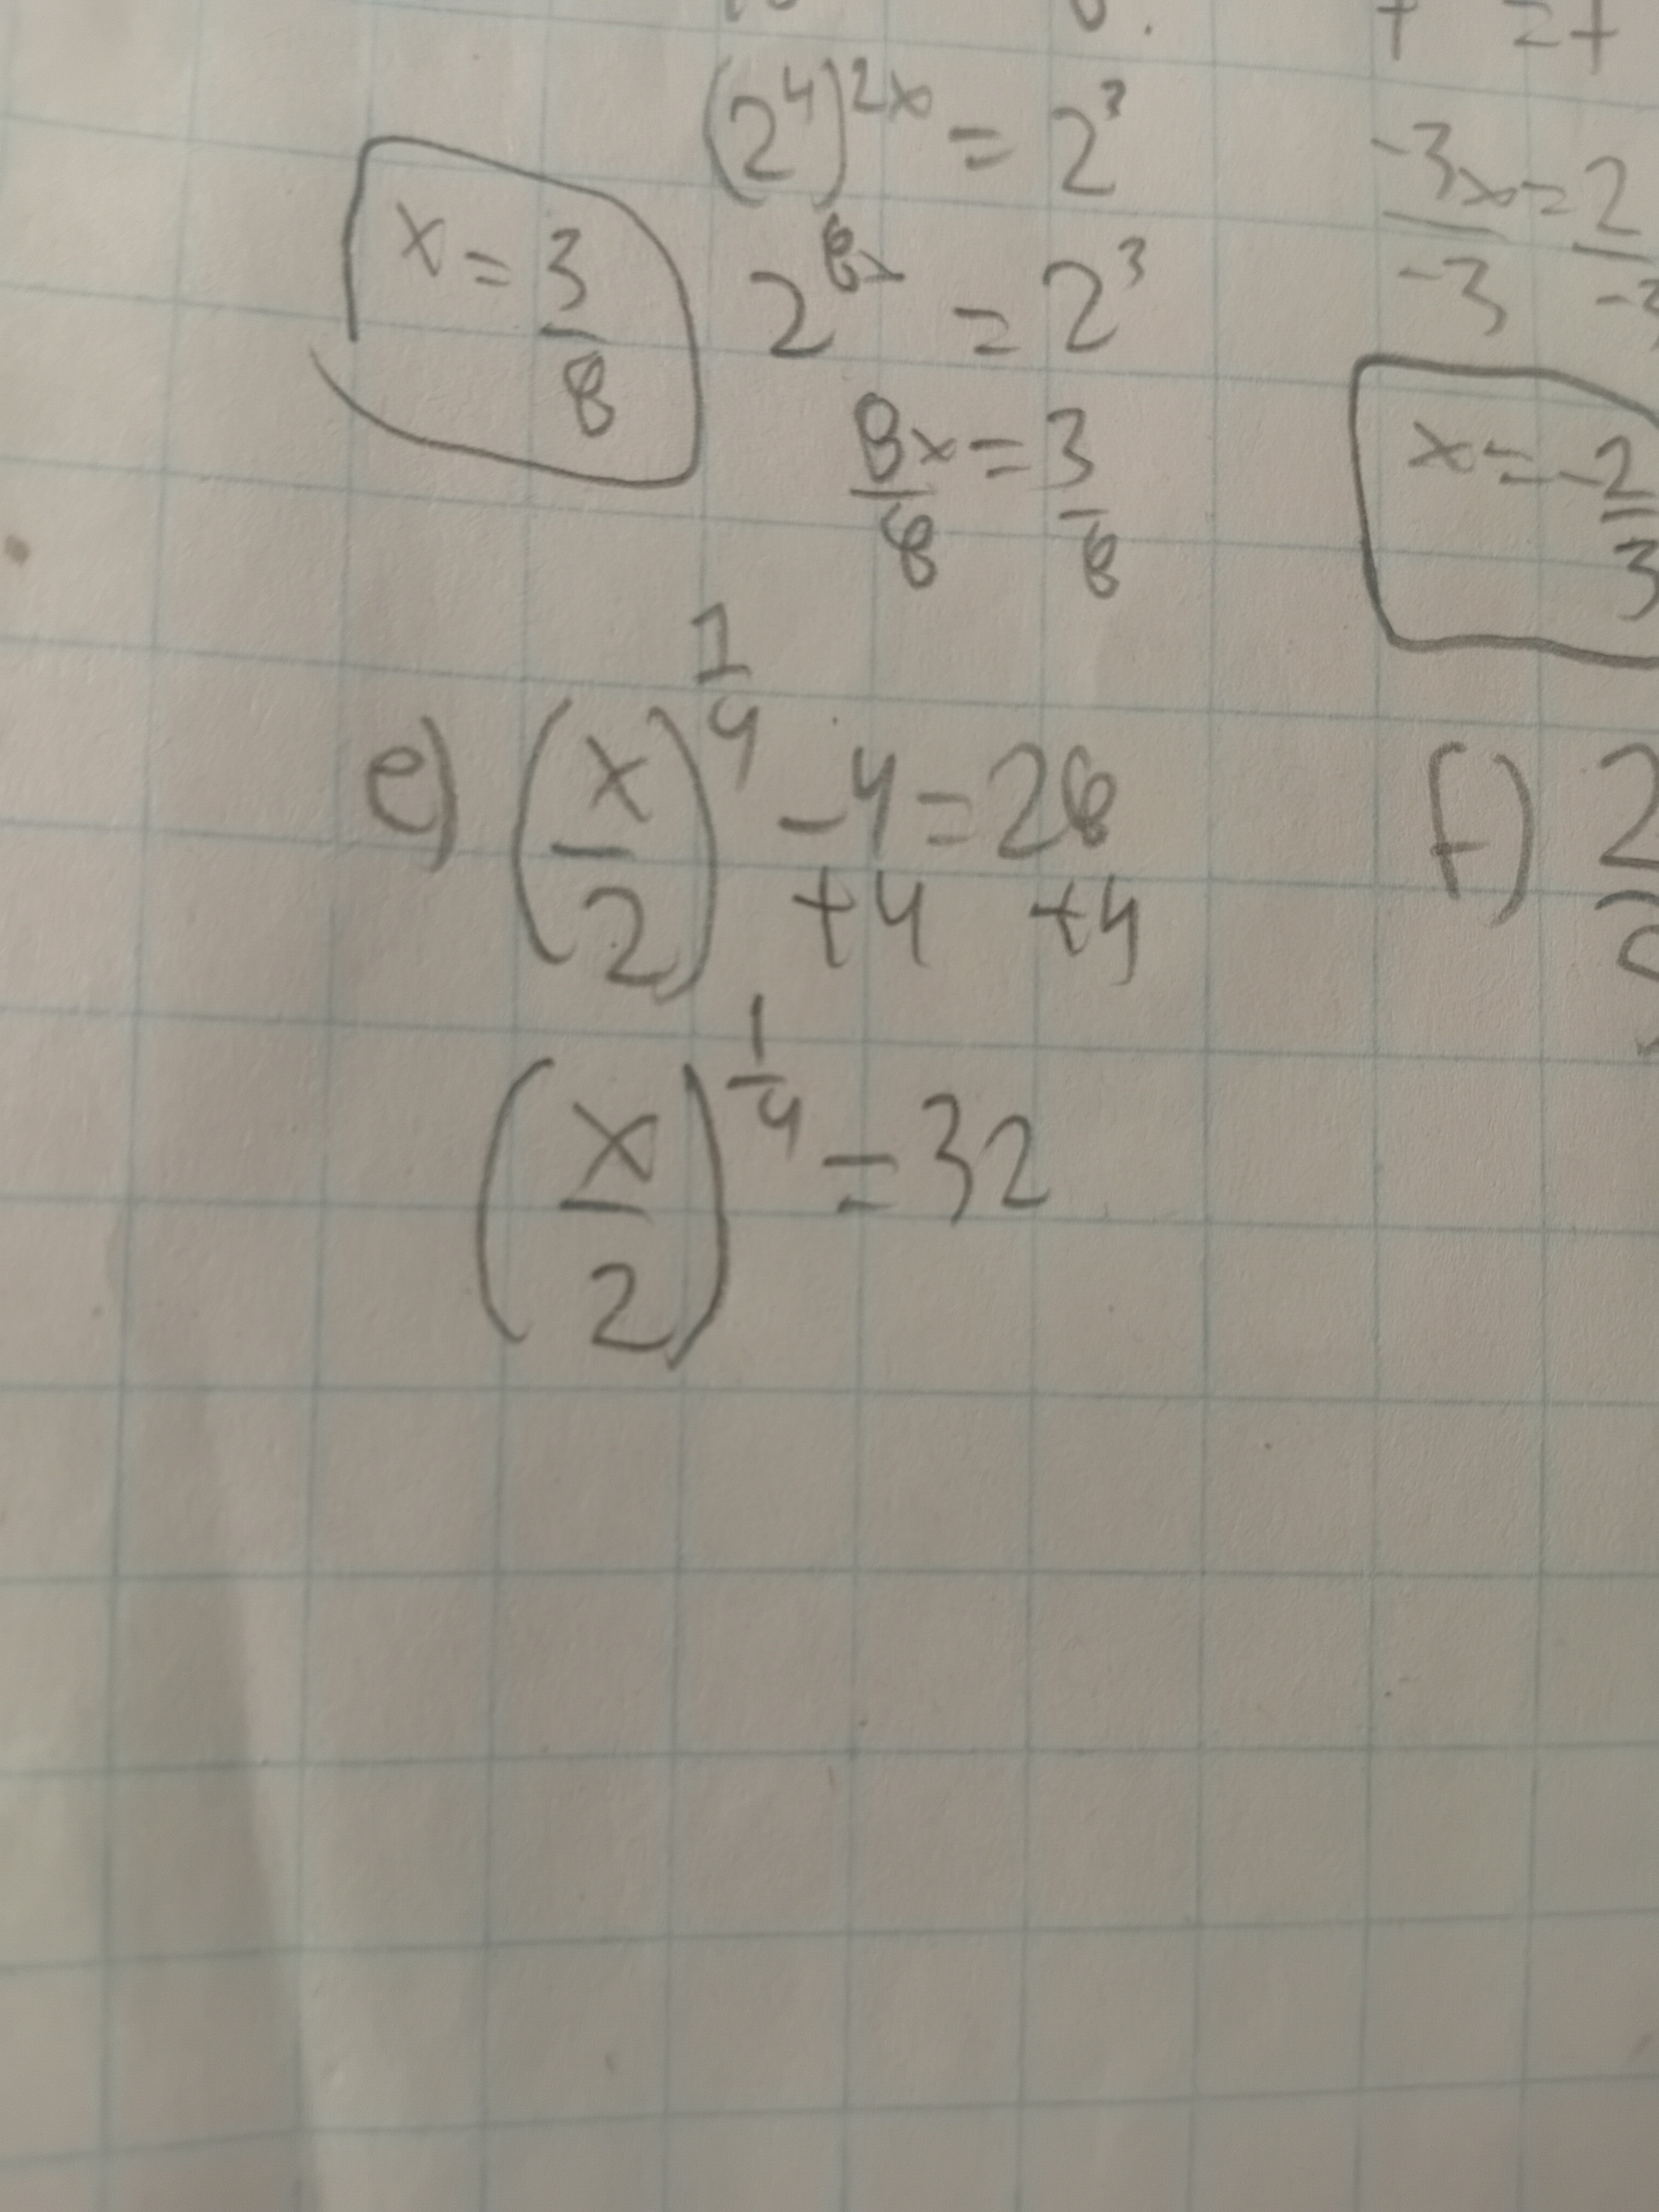 (2⁴)²ˣ = 2³
2⁸ˣ = 2³
8x/8 = 3/8
x = 3/8
-3x/-3 = 2/-3
x = -2/3
e) (x/2)^(1/4) - 4 = 28
+4 +4
(x/2)^(1/4) = 32
f) 2